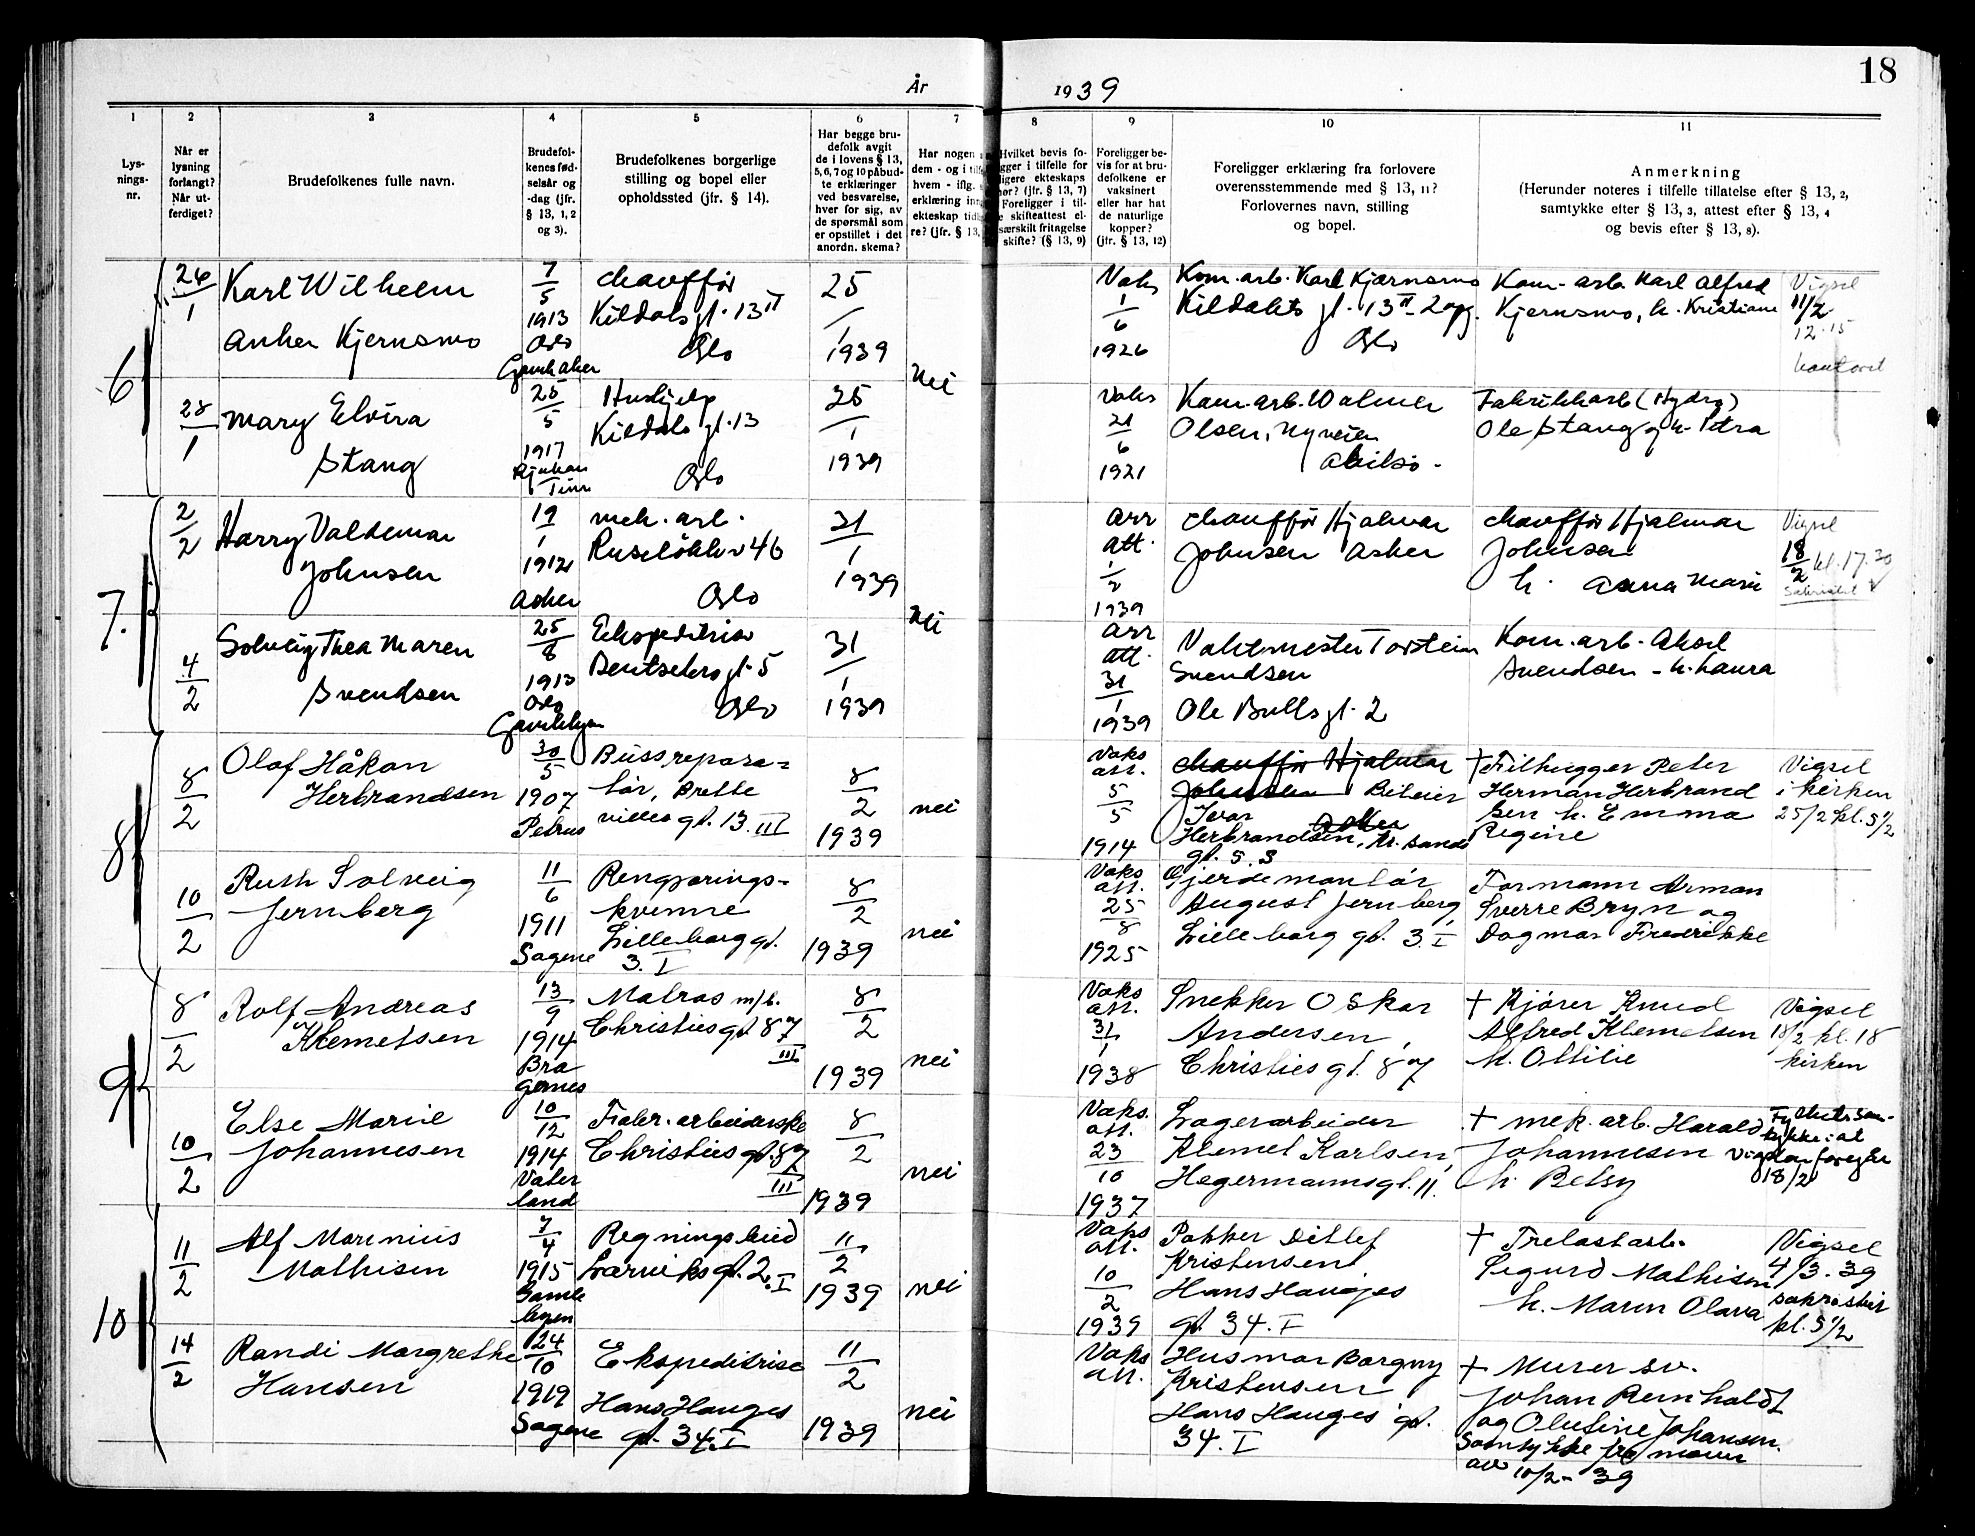 18
År 1939
1
2
3
4
5
6
7
8
9
10
11
Lys-
nings-
nr.
Når er
lysning
forlangt?
Når ut-
ferdiget?
Brudefolkenes fulle navn.
Brudefol-
kenes fød-
selsår og
-dag (jfr.
§ 13, 1, 2
og 3).
Brudefolkenes borgerlige
stilling og bopel eller
opholdssted (jfr. § 14).
Har begge bru-
defolk avgit
de i lovens § 13,
5, 6, 7 og 10 påbud-
te erklæringer
ved besvarelse,
hver for sig, av
de spørsmål som
er opstillet i det
anordn. skema?
Har nogen
dem - og i
hvem - iflg.
erklæring
ekteskap
re? (jfr. § 13,
Hvilket bevis fo-
gger i tilfelle for
ligere ekteskaps
(jfr. § 13, 7)
Foreligger i til-
skifteattest el-
særskilt fritagelse
skifte? (§ 13, 9)
Foreligger be-
vis for at bru-
defolkene er
vaksinert
eller har hat
de naturlige
kopper?
(jfr. § 13, 12)
Foreligger erklæring fra forlovere
overensstemmende med § 13, 11?
Forlovernes navn, stilling
og bopel.
Anmerkning
(Herunder noteres i tilfelle tillatelse efter § 13, 2,
samtykke efter § 13, 3, attest efter § 13, 4
og bevis efter § 13, 8).
6
26/1
Karl Wilhelm
Anker Kjernsmo
7/5
1913
Oslo
chauffør
Kildals gt. 13 II
Oslo
25/1
1939
nei
1/6
1926
Kom. arb. Karl Kjærnsmo
gt. 13 II 2 opg.
Oslo
Kom. arb. Karl Alfred
Kjernsmo, h. Kristiane
Vigsel
11/2
12.15
kontoret
28/1
Mary Elvira
Stang
25/5
1917
Rjukan
Tinn
Hushjelp
Kildals gt. 13
Oslo
25/1
1939
21/6
1921
Kom. arb. Valmer
Olsen, Nyveien
Fabrikkarb (Hydro)
Ole Stang og h. Petra
7.
2/2
Harry Valdemar
Johnsen
19/1
1912
Asker
mek. arb.
46
Oslo
31/1
1939
nei
arr
att.
1/2
1939
chauffør Hjalmar
Johnsen Asker
chauffør Hjalmar
Johnsen
h. Anna Marie
Vigsel
18/2 kl. 17.30
4/2
Solveig Thea Maren
Svendsen
25/8
1913
Oslo
Ekspeditrise
Bentsebro gt. 5
Oslo
31/1
1939
arr
att.
31/1
1939
Vaktmester Torstein
Svendsen
Ole Bulls gt. 2
Kom. arb. Aksel
Svendsen - h. Laura
8
8/2
Olaf Håkon
Herbrandsen
30/5
1907
Petrus
Bussrepara=
tør, Brette
villes gt. 13. III
8/2
1939
nei
Vaks
att.
5/5
1914
chauffør Hjalmar
Johnsen
Ivar Asker
Herbrandsen, Kr.sands
gt. 5. 3
† Filhugger Peter
Herman Herbrand
sen h. Emma
Regine
Vigsel
i kirken
25/2 kl. 5 1/2
10/2
Ruth Solveig
Jernberg
11/6
1911
Sagene
Rengjørings=
kvinne
Lilleborg gt.
3. I
8/2
1939
nei
Vaks
att.
25/8
1925
Gjerdemontør
August Jernberg
Lilleborg gt. 3. I
Formann Arman
Sverre Bryn og
Dagmar Fredrikke
9
8/2
Rolf Andreas
Klemetsen
13/9
1914
Bra
gernes
Matros m/b.
Christies gt. 87
III
8/2
1939
nei
Vaks
att.
31/1
1938
Snekker Oskar
Andersen,
Christies gt. 87
† Kjører Knud
Alfred Klemetsen
h. Ottilie
Vigsel
18/2 kl. 18
kirken
10/2
Else Marie
Johannesen
10/12
1914
Vater
land
Fabr. arbeiderske
Christies gt. 87
III
8/2
1939
nei
Vaks.
att.
23/10
1937
Lagerarbeider
Klemet Karlsen,
Hegermannsgt. 11.
† mek. arb. Harald
Johannesen
h. Betsy
18/2
10
11/2
Alf Marinius
Mathisen
7/4
1915
Gamle
byen
Regningsbud
Larviks gt. 2. I
11/2
1939
nei
Vaks
att.
10/2
1939
Pakker Ditlef
Kristensen
Hans Hauges
gt. 34. I
† Trelastarb.
Sigurd Mathisen
h. Maren Olava
Vigsel
4/3. 39
sakristiet
kl. 5 1/2
14/2
Randi Margrethe
Hansen
24/10
1919
Sagene
Ekspeditrise
Hans Hauges
gt. 34. I
11/2
1939
nei
Vaks
att.
Husmor Borgny
Kristensen
Hans Hauges gt.
34. I
† Murer sv.
Johan Reinholdt
og Olufine Johansen.
Samtykke fra moren
av 10/2 - 39